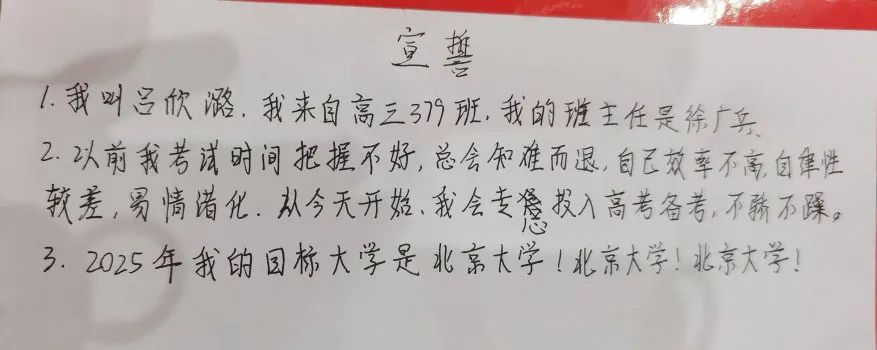 宣誓
1. 我叫吕欣潞. 我来自高三379班. 我的班主任是徐广兵.
2. 以前我考试时间把握不好, 总会知难而退, 自己效率不高, 自律性
较差, 易情绪化. 从今天开始, 我会专心投入高考备考, 不骄不躁。
3. 2025年我的目标大学是北京大学! 北京大学! 北京大学!